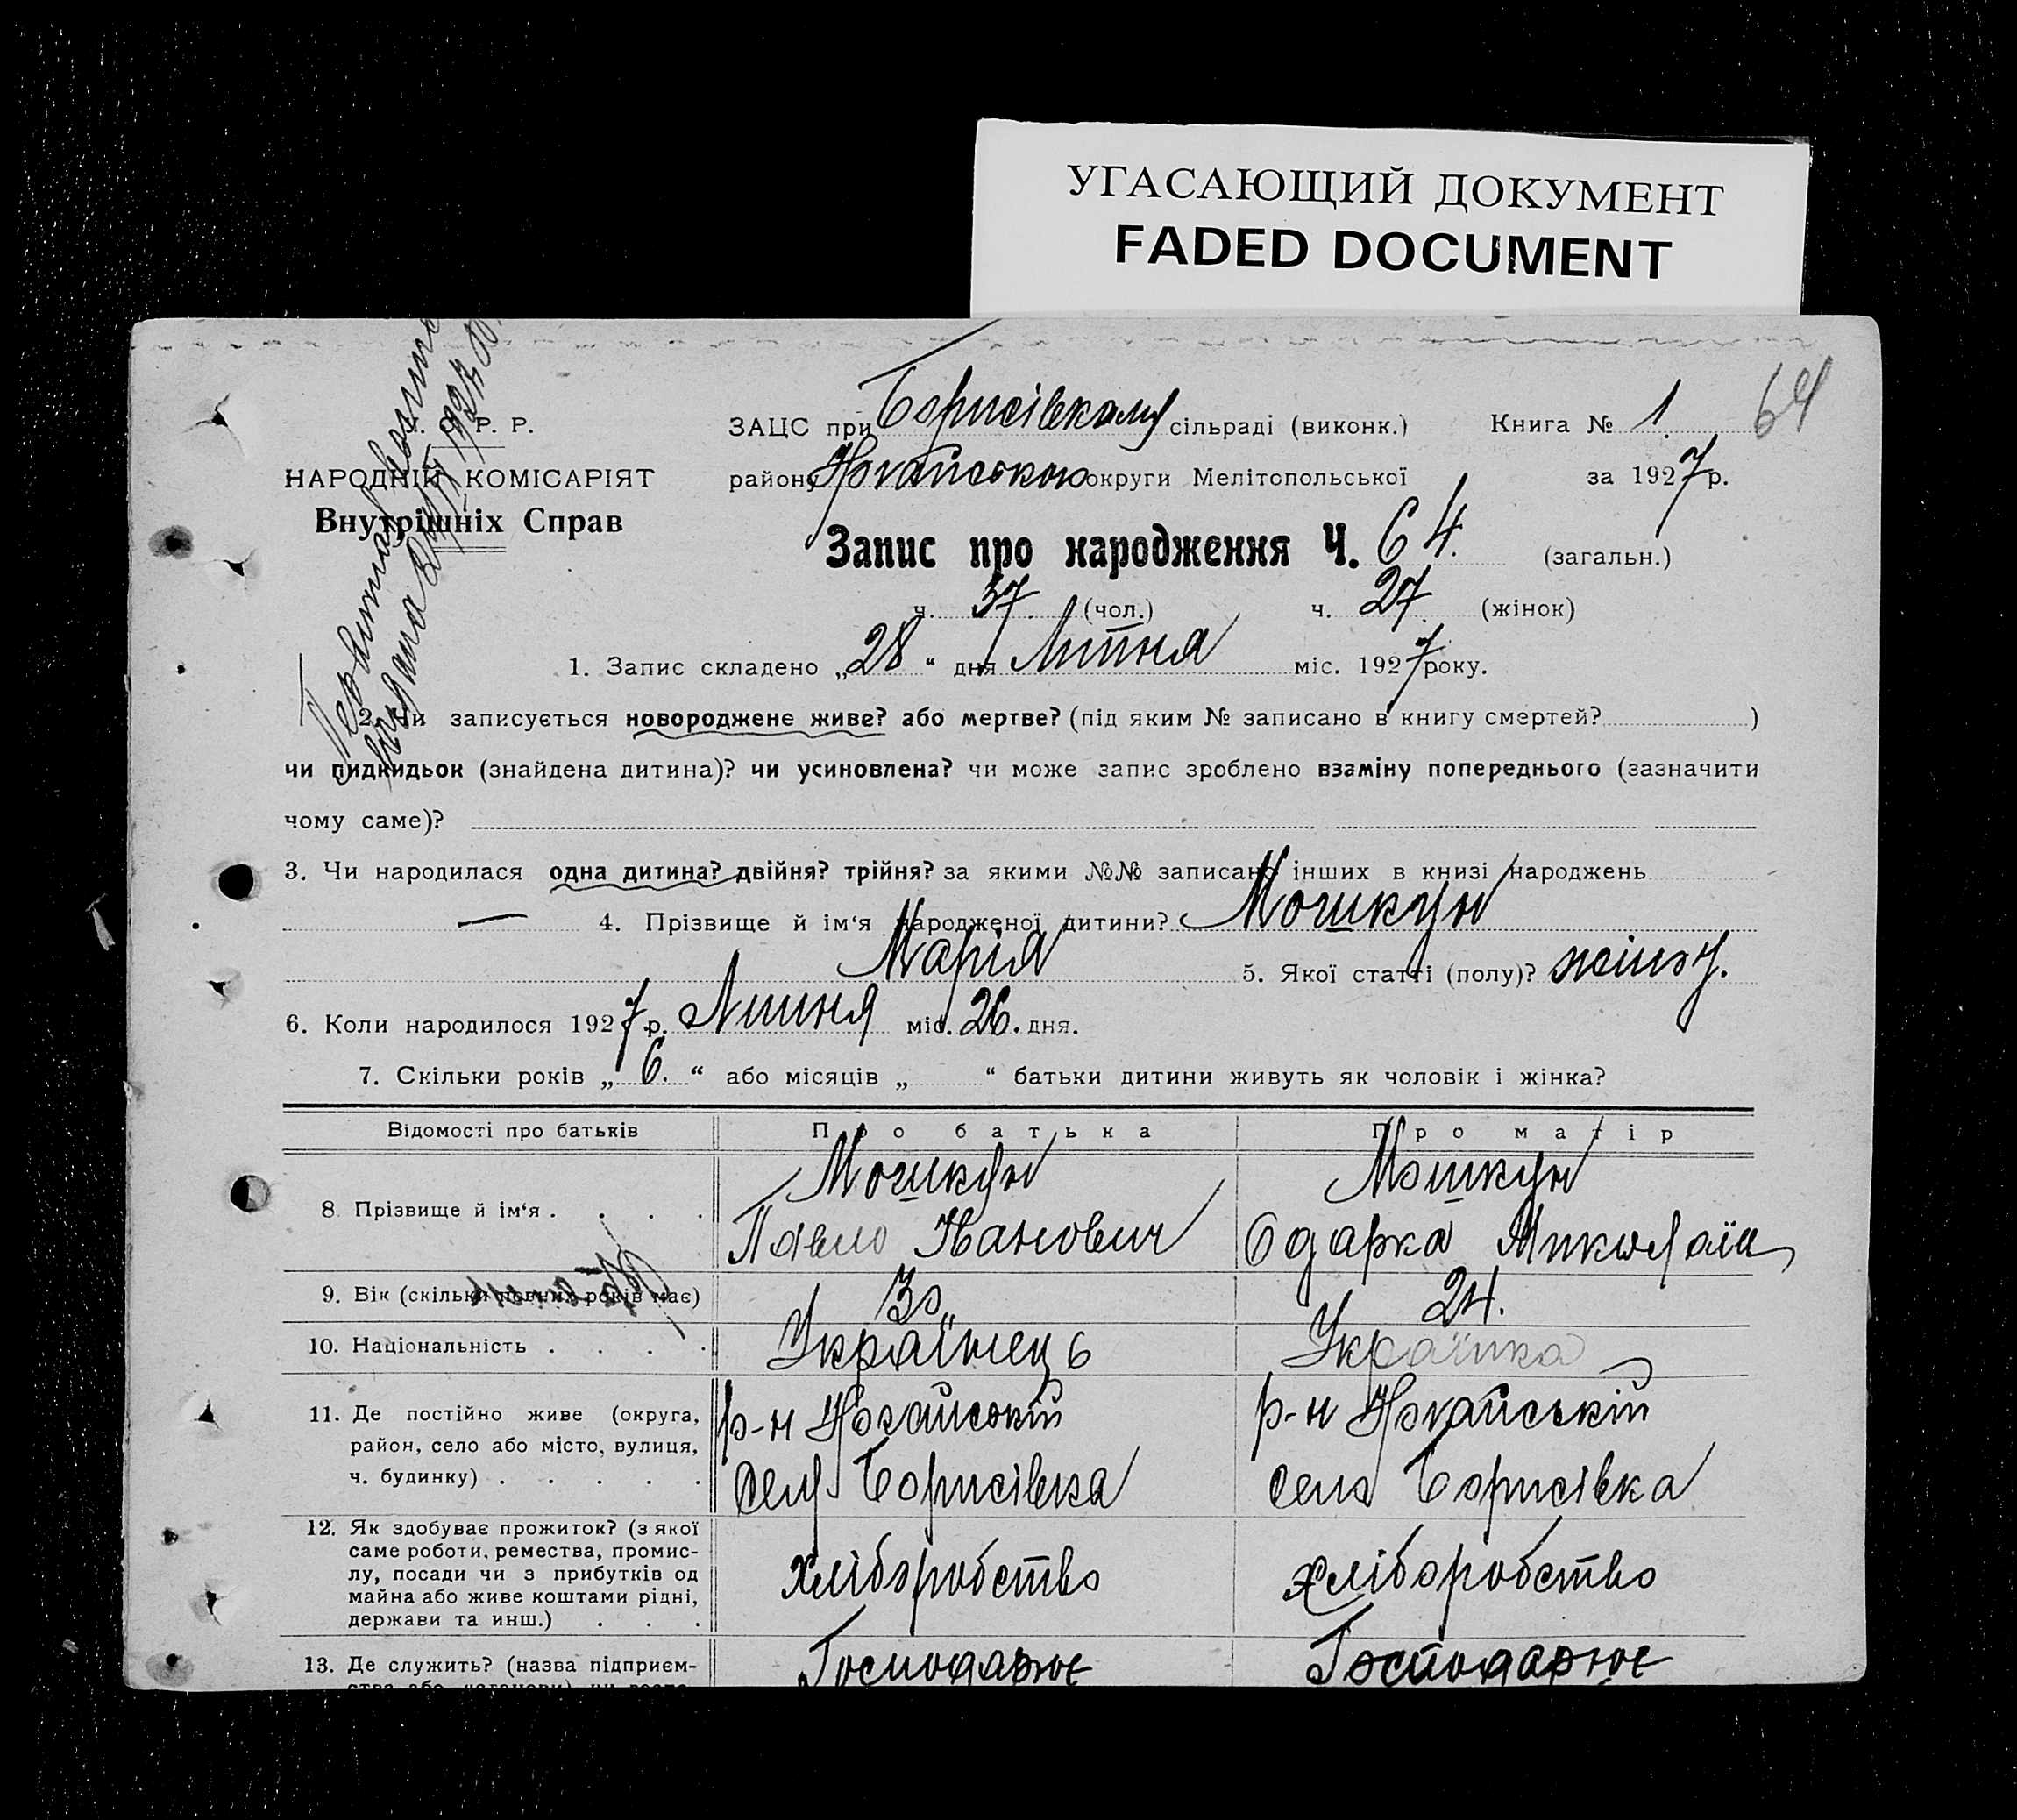 УГАСАЮЩИЙ ДОКУМЕНТ
FADED DOCUMENT
Р. Р.
НАРОДНІЙ КОМІСАРІЯТ
Внутрішніх Справ
ЗАЦС при Борисівкому сільраді (виконк.) Книга № 1. 64
району Ногайського округи Мелітопольської за 1927 р.
Запис про народження Ч. 64. (загальн.)
ч. 37 (чол.) ч. 27 (жінок)
1. Запис складено „28“ дня Липня міс. 1927 року.
2. Чи записується новороджене живе? або мертве? (під яким № записано в книгу смертей? )
чи пидкидьок (знайдена дитина)? чи усиновлена? чи може запис зроблено взаміну попереднього (зазначити
чому саме)?
3. Чи народилася одна дитина? двійня? трійня? за якими №№ записано інших в книзі народжень
— 4. Прізвище й ім‘я народженої дитини? Мошкун
Марія 5. Якої статті (полу)? жіноч.
6. Коли народилося 1927 р. Липня міс. 26. дня.
7. Скільки років „ 6. “ або місяців „ “ батьки дитини живуть як чоловік і жінка?
Відомості про батьків Про батька Про матір
8. Прізвище й ім‘я . . . . Мошкун Мошкун
Павло Іванович Одарка Миколаїв
9. Вік (скільки повних років має) 30 24.
10. Національність . . . . Українець Українка
11. Де постійно живе (округа, район, село або місто, вулиця, ч. будинку) . . . . . р-н Ногайській р-н Ногайській
село Борисівка село Борисівка
12. Як здобуває прожиток? (з якої
саме роботи, ремества, промис-
лу, посади чи з прибутків од
майна або живе коштами рідні,
держави та инш.) . . . хліборобство хліборобство
13. Де служить? (назва підприєм- Господарює Господарює